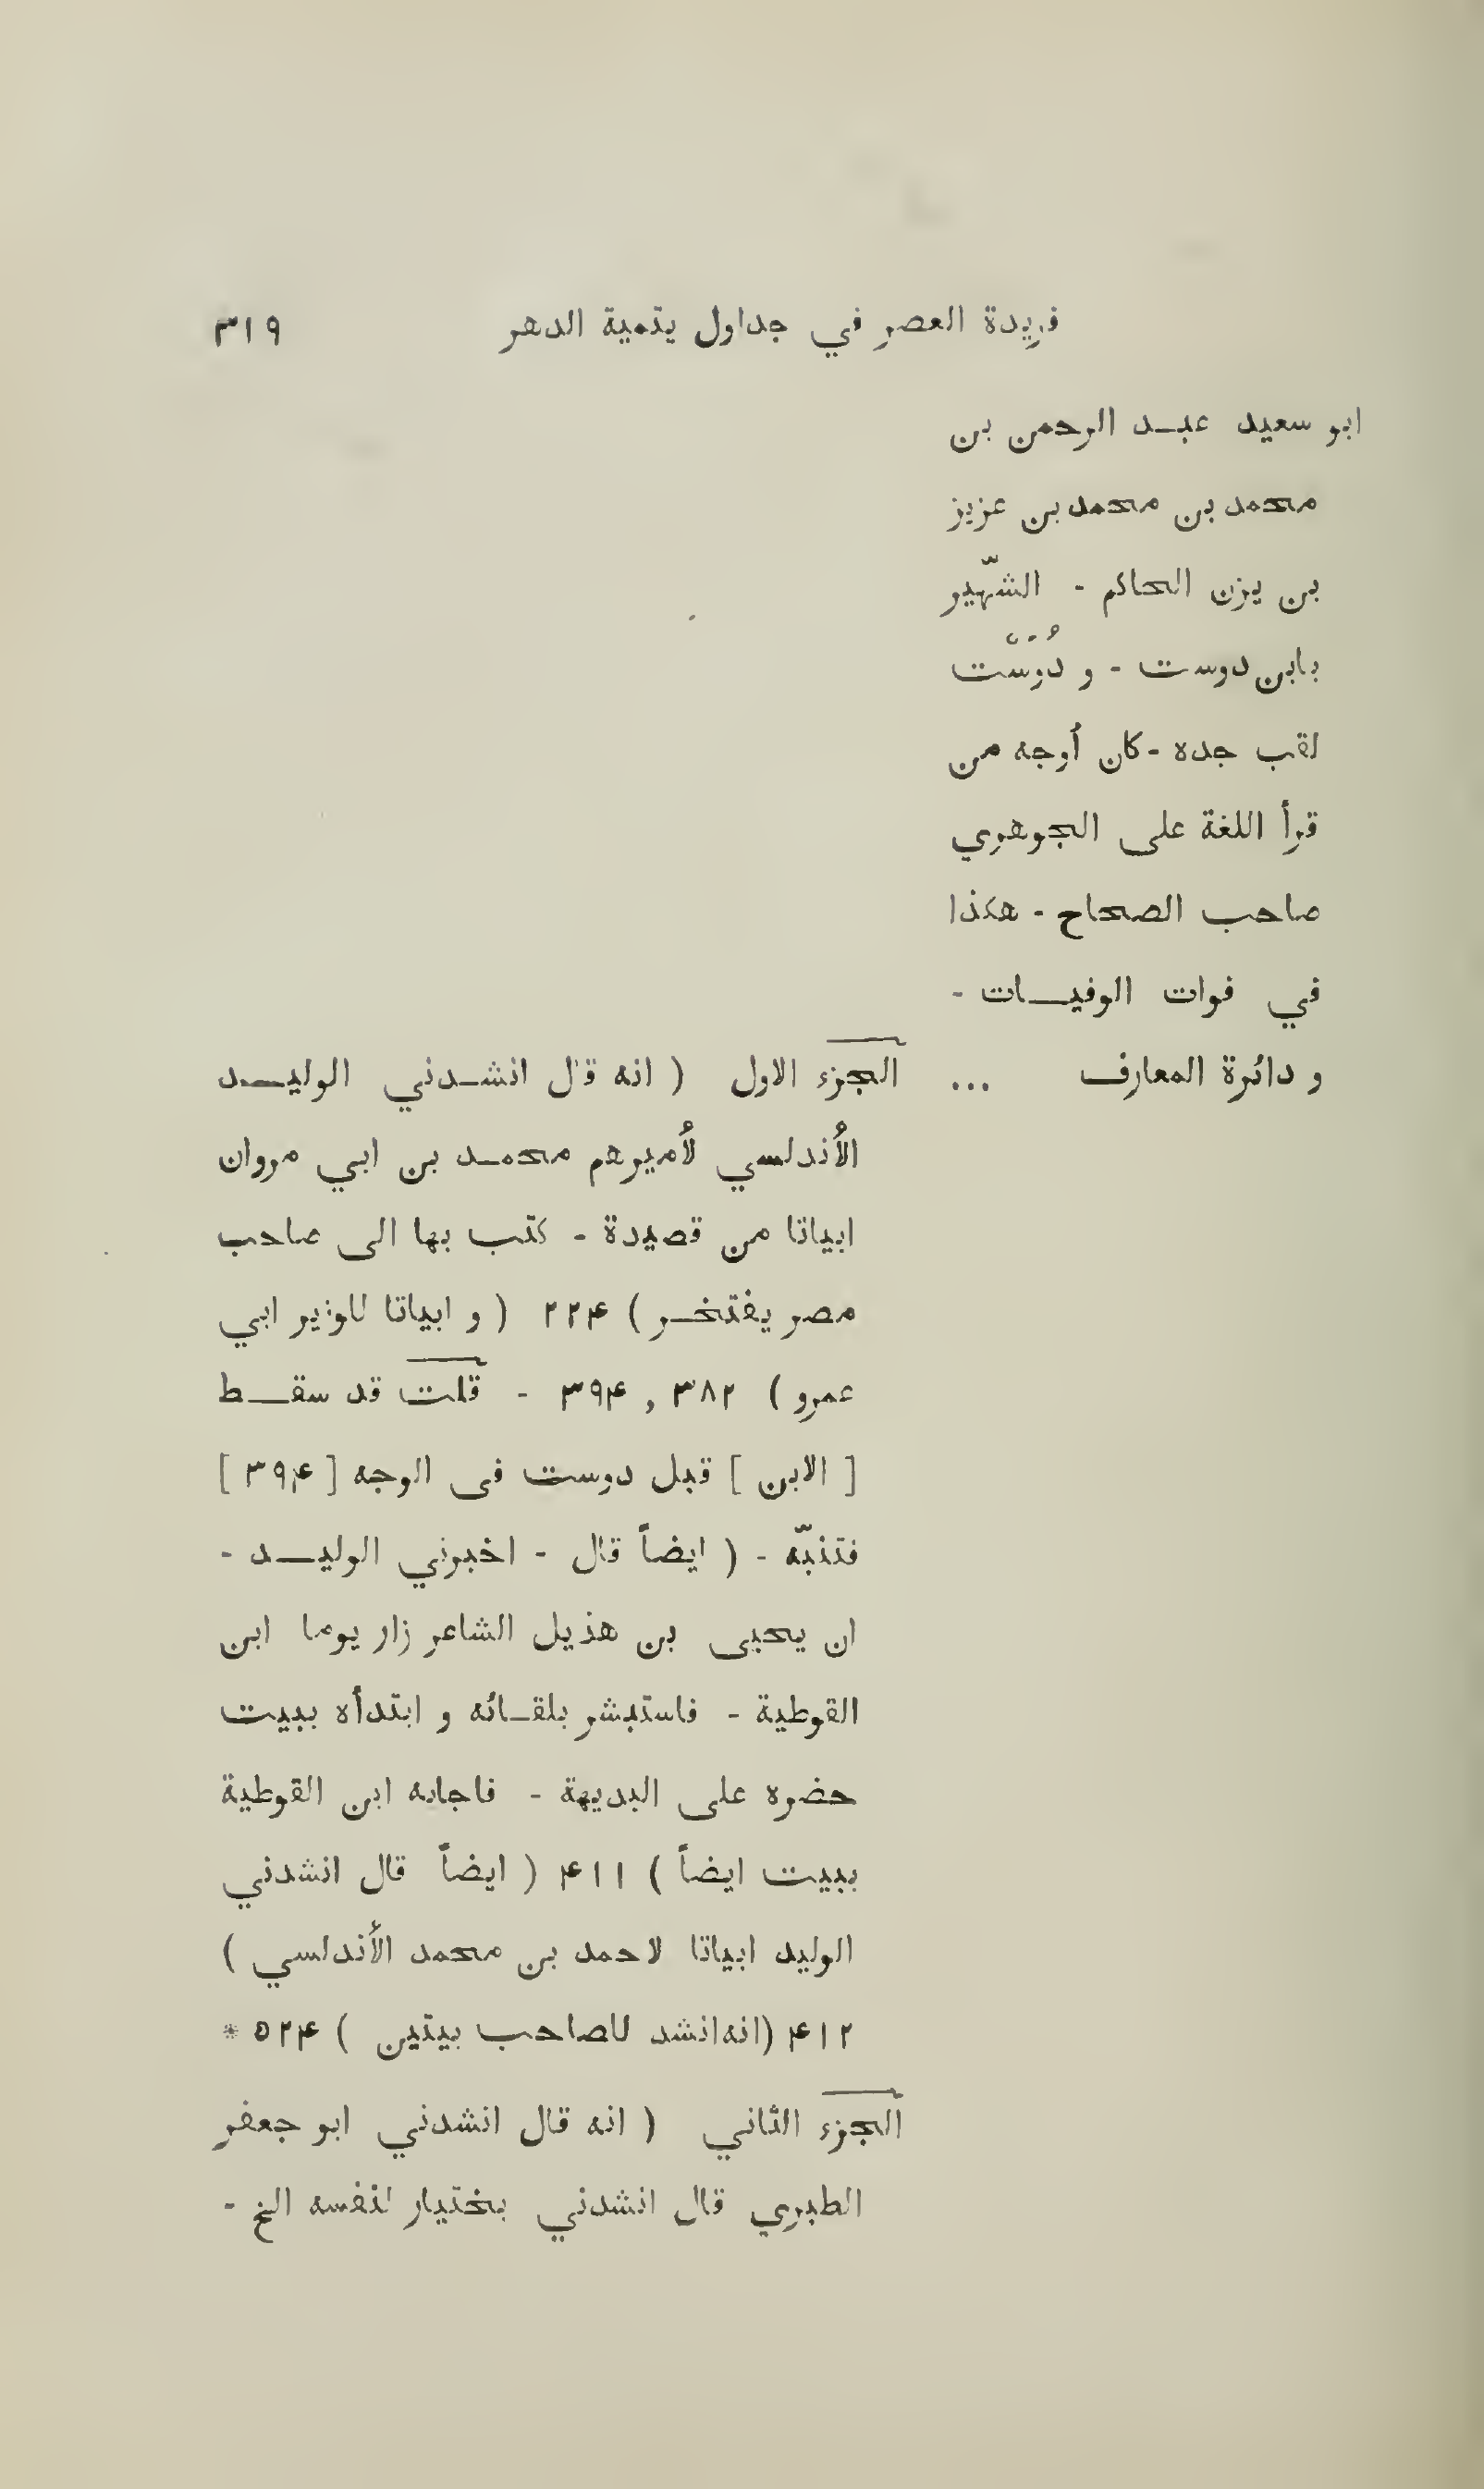 فريدة العصر في جداول يتمية الدهر ٣١٩
ابو سعيد عبد الرحمن بن
محمد بن محمد بن عزيز
بن يزن الحاكم - الشّهير
بابن دوست - و دُوسْت
لقب جده - كان أوجه من
قرأ اللغة على الجوهري
صاحب الصحاح - هكذا
في فوات الوفيات -
و دائرة المعارف ... الجزء الاول ( انه قال انشدني الوليد
الأندلسي لأميرهم محمد بن ابي مروان
ابياتا من قصيدة - كتب بها الى صاحب
مصر يفتخر ) ٢٢۴ ( و ابياتا للوزير ابي
عمرو ) ٣٨٢ , ٣٩۴ - قلت قد سقط
[ الابن ] قبل دوست فى الوجه [ ٣٩۴ ]
فتنبّه - ( ايضاً قال - اخبرني الوليد -
ان يحيى بن هذيل الشاعر زار يوما ابن
القوطية - فاستبشر بلقائه و ابتدأه ببيت
حضره على البديهة - فاجابه ابن القوطية
ببيت ايضاً ) ۴١١ ( ايضاً قال انشدني
الوليد ابياتا لاحمد بن محمد الأندلسي )
۴١٢ (انه انشد للصاحب بيتين ) ٥٢۴ *
الجزء الثاني ( انه قال انشدني ابو جعفر
الطبري قال انشدني بختيار لنفسه الخ -